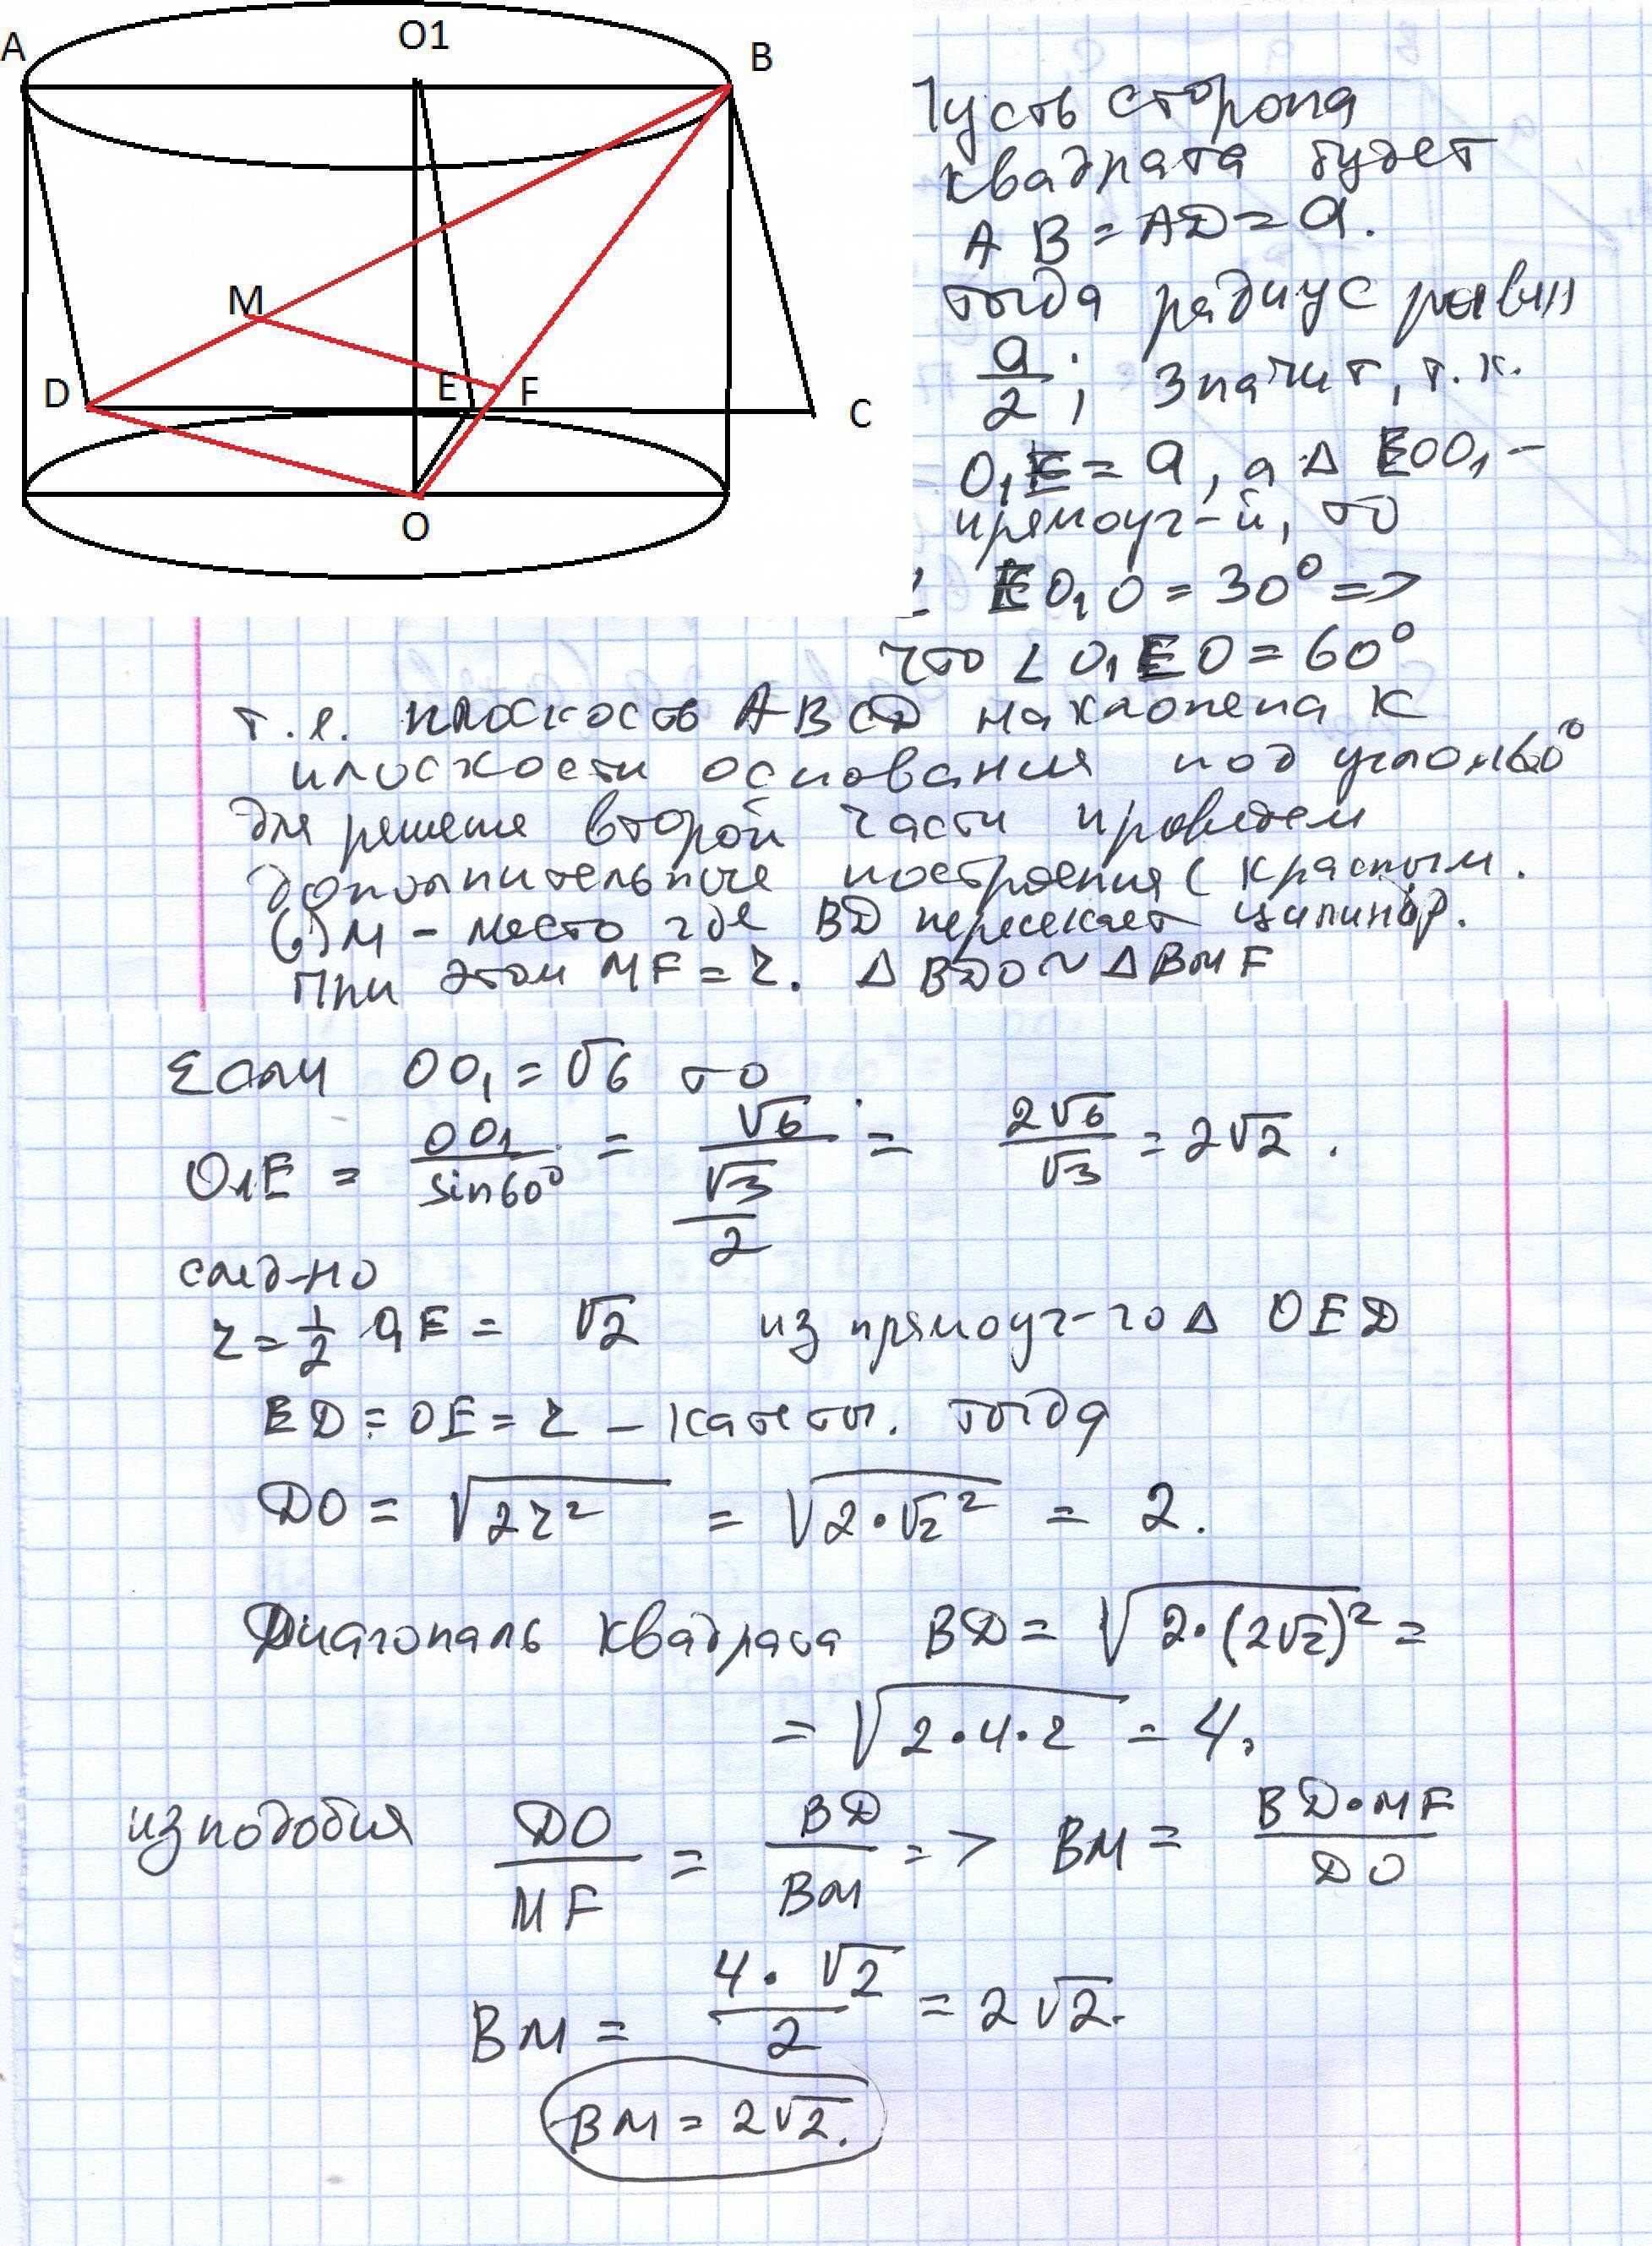 A
O1
B
M
D
E
F
C
O
Пусть сторона
квадрата будет
AB = AD = a.
тогда радиус равен
a/2; Значит, т.к.
O₁E = a, а Δ EOO₁ –
прямоуг-й, то
∠ EO₁O = 30° =>
что ∠ O₁EO = 60°
т.е. плоскость ABCD наклонена к
плоскости основания под углом 60°
Для решения второй части проведем
дополнительные построения (красным.
(·) M – место где BD пересекает цилиндр.
При этом MF = r. Δ BDO ~ Δ BMF
Если OO₁ = √6 то
O₁E = OO₁/sin60° = √6/(√3/2) = 2√6/√3 = 2√2.
след-но
r = 1/2 O₁E = √2 из прямоуг-го Δ OED
ED = OE = r – катеты. тогда
DO = √(2r²) = √(2·√2²) = 2.
Диагональ квадрата BD = √(2·(2√2)²) =
= √(2·4·2) = 4.
из подобия DO/MF = BD/BM => BM = BD·MF/DO
BM = 4·√2/2 = 2√2.
BM = 2√2.